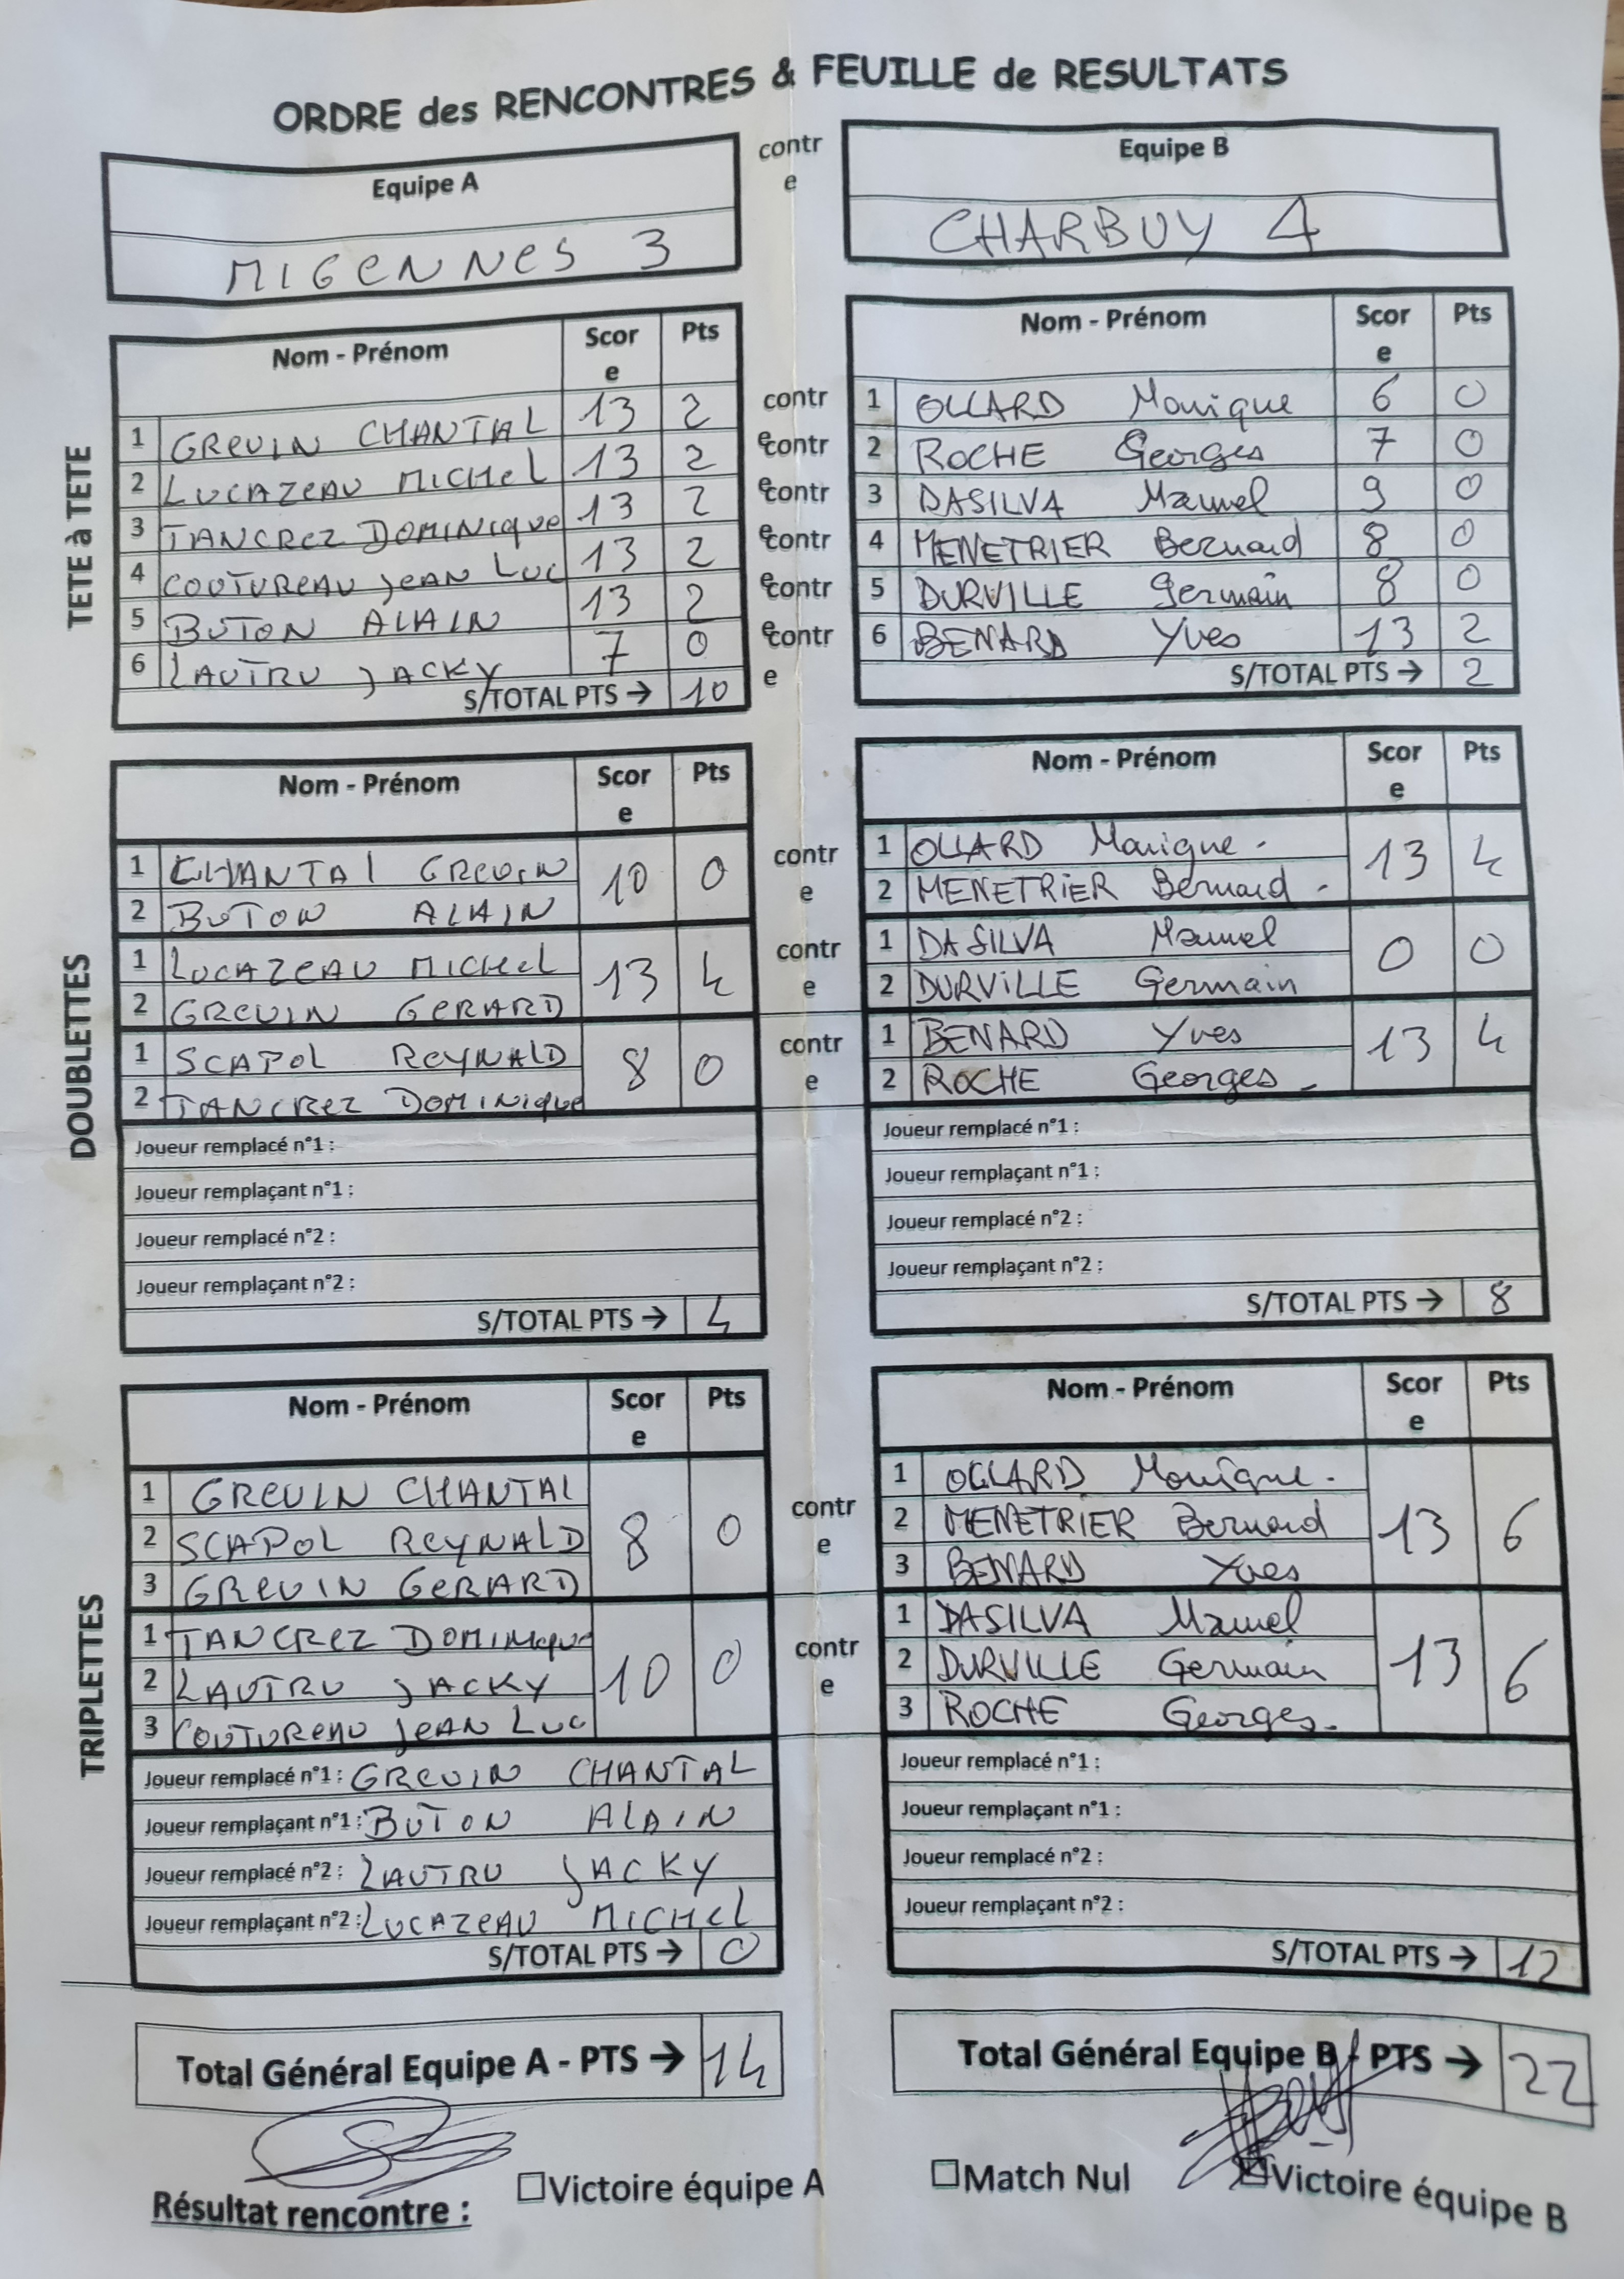 ORDRE des RENCONTRES & FEUILLE de RESULTATS
Equipe A
MIGENNES 3
contr
e
Equipe B
CHARBUY 4
TETE à TETE
Nom - Prénom Scor e Pts
1 GREVIN CHANTAL 13 2
2 LUCAZEAU MICHEL 13 2
3 TANCREZ DOMINIQUE 13 2
4 COUTUREAU JEAN LUC 13 2
5 BUTON ALAIN 13 2
6 LAUTRU JACKY 7 0
S/TOTAL PTS → 10
contr
e
contr
e
contr
e
contr
e
contr
e
contr
e
Nom - Prénom Scor e Pts
1 OLLARD Monique 6 0
2 ROCHE Georges 7 0
3 DASILVA Manuel 9 0
4 MENETRIER Bernard 8 0
5 DURVILLE Germain 8 0
6 BENARD Yves 13 2
S/TOTAL PTS → 2
DOUBLETTES
Nom - Prénom Scor e Pts
1 CHANTAL GREVIN 10 0
2 BUTON ALAIN
1 LUCAZEAU MICHEL 13 4
2 GREVIN GERARD
1 SCAPOL REYNALD 8 0
2 TANCREZ DOMINIQUE
Joueur remplacé n°1 :
Joueur remplaçant n°1 :
Joueur remplacé n°2 :
Joueur remplaçant n°2 :
S/TOTAL PTS → 4
contr
e
contr
e
contr
e
Nom - Prénom Scor e Pts
1 OLLARD Monique - 13 4
2 MENETRIER Bernard -
1 DASILVA Manuel 0 0
2 DURVILLE Germain
1 BENARD Yves 13 4
2 ROCHE Georges -
Joueur remplacé n°1 :
Joueur remplaçant n°1 :
Joueur remplacé n°2 :
Joueur remplaçant n°2 :
S/TOTAL PTS → 8
TRIPLETTES
Nom - Prénom Scor e Pts
1 GREVIN CHANTAL 8 0
2 SCAPOL REYNALD
3 GREVIN GERARD
1 TANCREZ DOMINIQUE 10 0
2 LAUTRU JACKY
3 COUTUREAU JEAN LUC
Joueur remplacé n°1 : GREVIN CHANTAL
Joueur remplaçant n°1 : BUTON ALAIN
Joueur remplacé n°2 : LAUTRU JACKY
Joueur remplaçant n°2 : LUCAZEAU MICHEL
S/TOTAL PTS → 0
contr
e
contr
e
Nom - Prénom Scor e Pts
1 OLLARD Monique - 13 6
2 MENETRIER Bernard
3 BENARD Yves
1 DASILVA Manuel 13 6
2 DURVILLE Germain
3 ROCHE Georges -
Joueur remplacé n°1 :
Joueur remplaçant n°1 :
Joueur remplacé n°2 :
Joueur remplaçant n°2 :
S/TOTAL PTS → 12
Total Général Equipe A - PTS → 14
Total Général Equipe B - PTS → 22
Résultat rencontre : ☐Victoire équipe A ☐Match Nul ☒Victoire équipe B